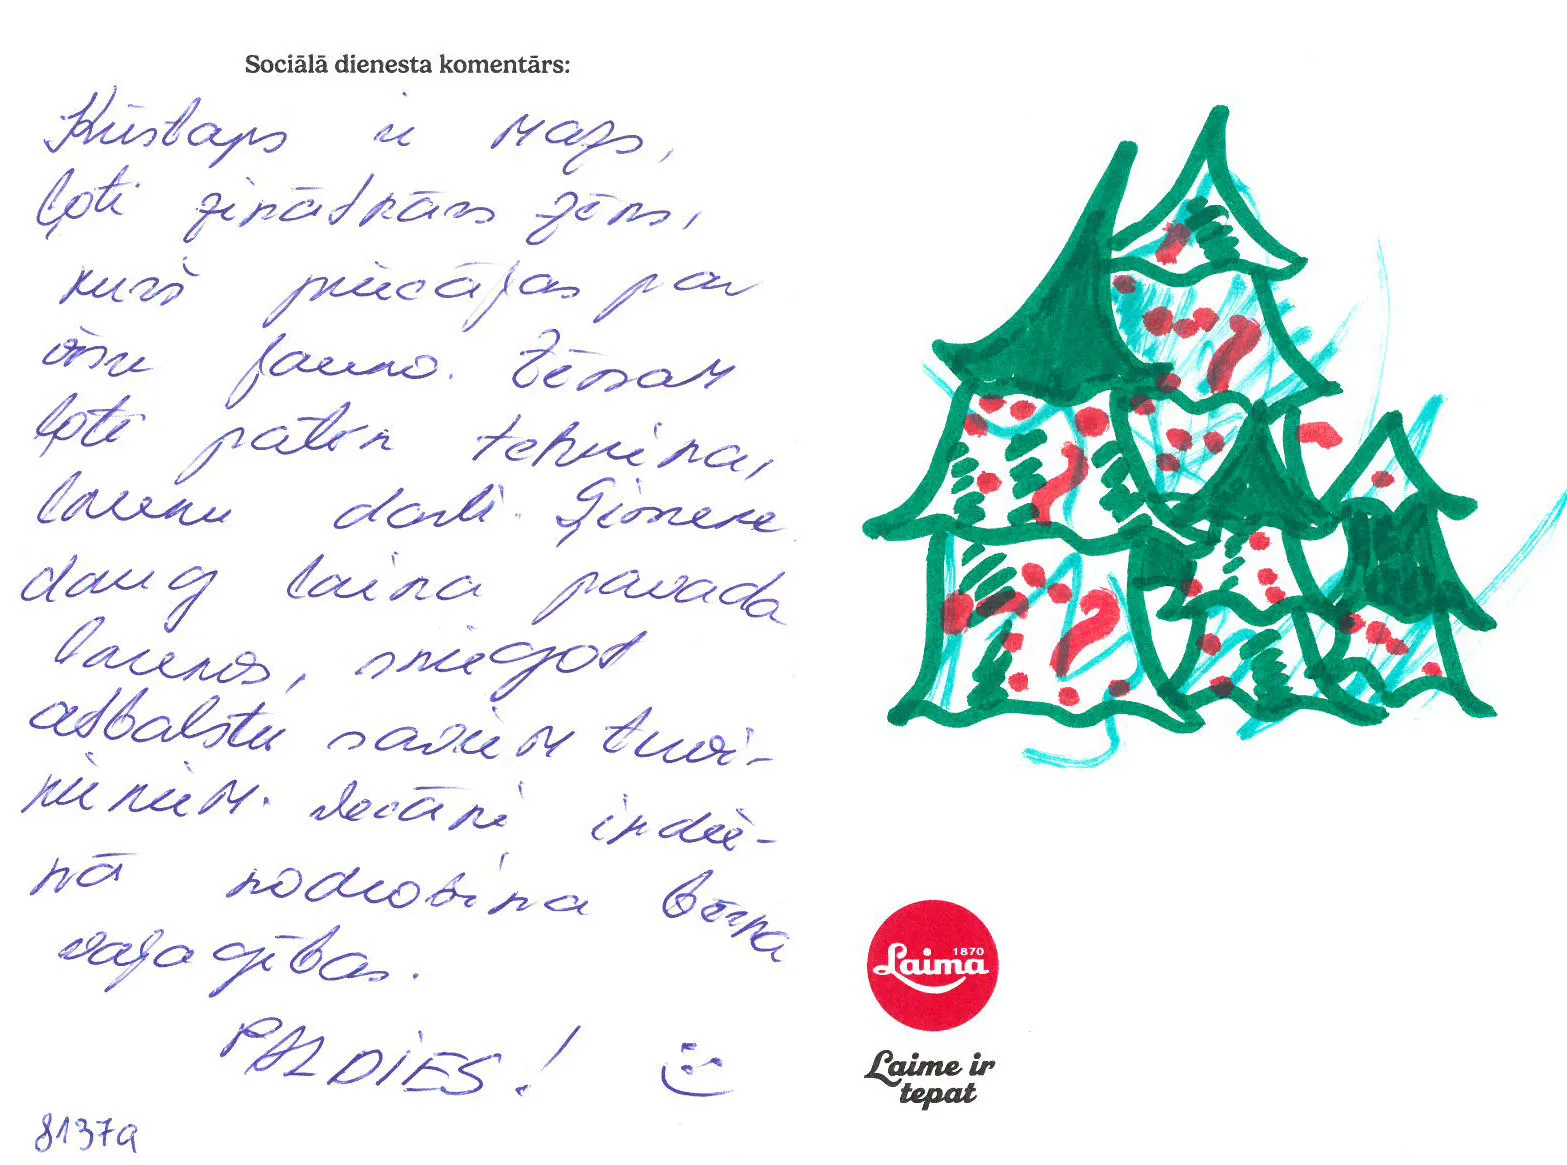 Sociālā dienesta komentārs:
Kristaps ir mazs,
ļoti zinātkārs zēns,
kurš priecājas par
visu jauno. Zēnam
ļoti patīk tehnika,
lauku darbi. Ģimene
daug laika pavada
laukos, sniegot
atbalstu saviem tuvi-
niekiem. Vecāki ikdie-
nā nodrošina bērna
vajadzības.
PALDIES! :)
8137a
Laima 1870
Laime ir
tepat